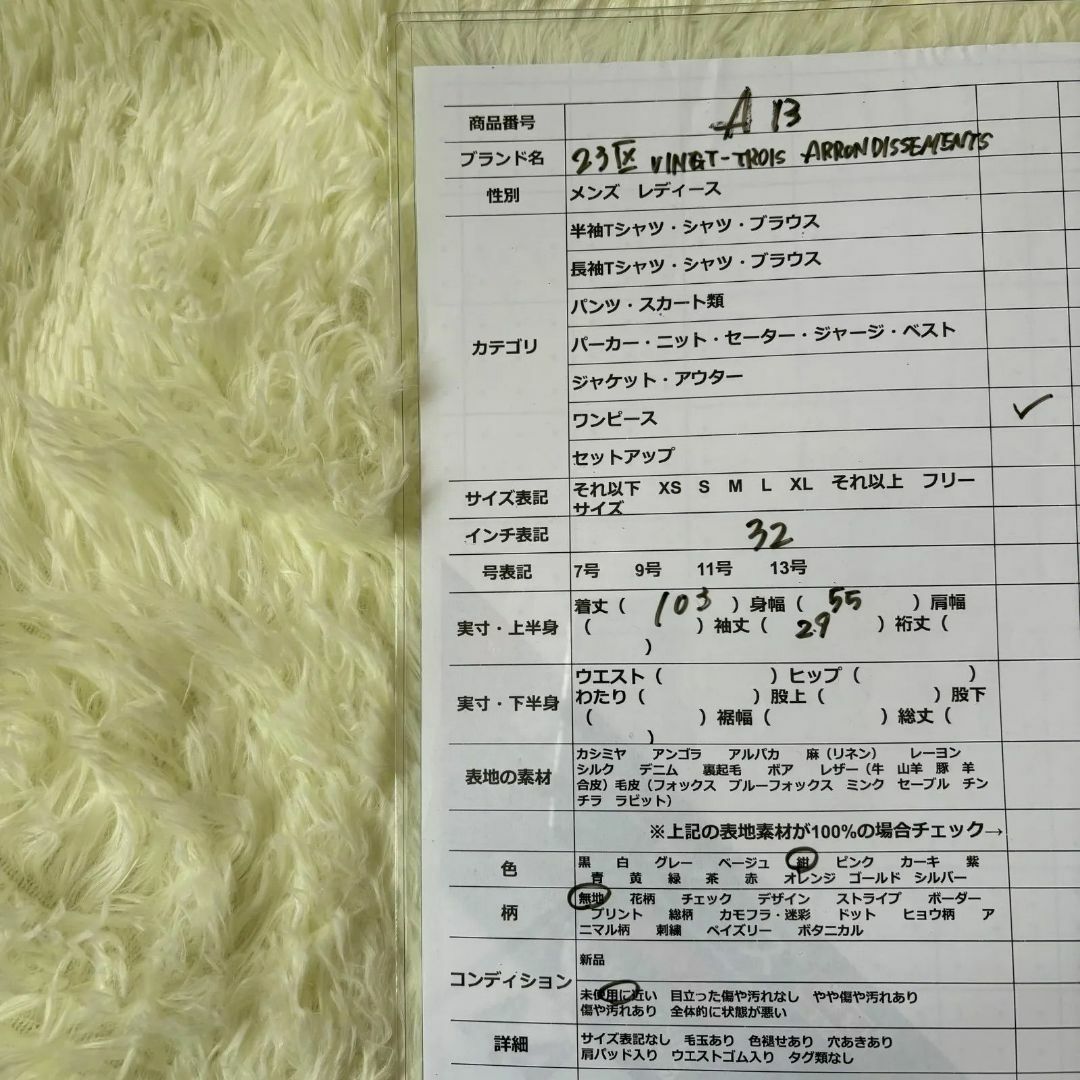 商品番号 A 13
ブランド名 23区 VINGT-TROIS ARRONDISSEMENTS
性別 メンズ レディース
カテゴリ
半袖Tシャツ・シャツ・ブラウス
長袖Tシャツ・シャツ・ブラウス
パンツ・スカート類
パーカー・ニット・セーター・ジャージ・ベスト
ジャケット・アウター
ワンピース ✓
セットアップ
サイズ表記 それ以下 XS S M L XL それ以上 フリー
サイズ
インチ表記 32
号表記 7号 9号 11号 13号
実寸・上半身
着丈（ 103 ）身幅（ 55 ）肩幅
（ ）袖丈（ 29 ）裄丈（
）
実寸・下半身
ウエスト（ ）ヒップ（ ）
わたり（ ）股上（ ）股下
（ ）裾幅（ ）総丈（
）
表地の素材
カシミヤ アンゴラ アルパカ 麻（リネン） レーヨン
シルク デニム 裏起毛 ボア レザー（牛 山羊 豚 羊
合皮）毛皮（フォックス ブルーフォックス ミンク セーブル チン
チラ ラビット）
※上記の表地素材が100%の場合チェック→
色
黒 白 グレー ベージュ 紺 ピンク カーキ 紫
青 黄 緑 茶 赤 オレンジ ゴールド シルバー
柄
無地 花柄 チェック デザイン ストライプ ボーダー
プリント 総柄 カモフラ・迷彩 ドット ヒョウ柄 ア
ニマル柄 刺繍 ペイズリー ボタニカル
コンディション
新品
未使用に近い 目立った傷や汚れなし やや傷や汚れあり
傷や汚れあり 全体的に状態が悪い
詳細
サイズ表記なし 毛玉あり 色褪せあり 穴あきあり
肩パッド入り ウエストゴム入り タグ類なし